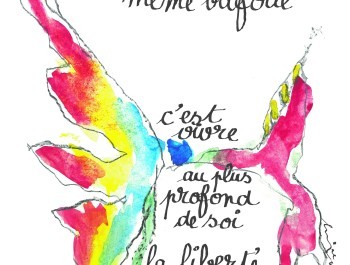 même bafoué
c'est
vivre
au plus
profond
de soi
la liberté